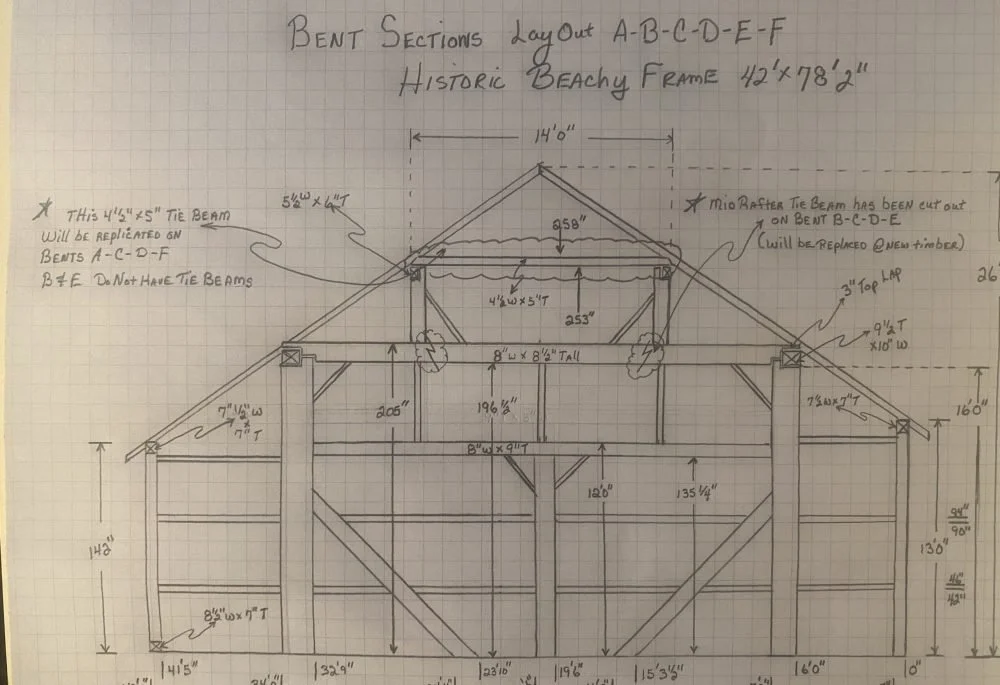 BENT SECTIONS LayOut A-B-C-D-E-F
HISTORIC BEACHY FRAME 42'x78'2"
14'0"
★ THIS 4½"x5" TIE BEAM
Will be REPLICATED ON
BENTS A-C-D-F
B&E Do Not HAVE TIE BEAMS
5½W x 6"T
258"
★ MID RAFTER TIE BEAM HAS BEEN CUT OUT
ON BENT B-C-D-E
(will be REPLACED @ NEW timber)
4½W x 5"T
253"
3" TOP LAP
26'
9½ T
x10" W
8"W x 8½" TALL
7" ½" W
x
7" T
205"
196½"
7½W x 7"T
16'0"
8"W x 9"T
12'0"
135¼"
142"
13'0"
94"
90"
46"
42"
8½"W x 7"T
41'5"
32'9"
23'10"
19'6"
15'3½"
6'0"
0"